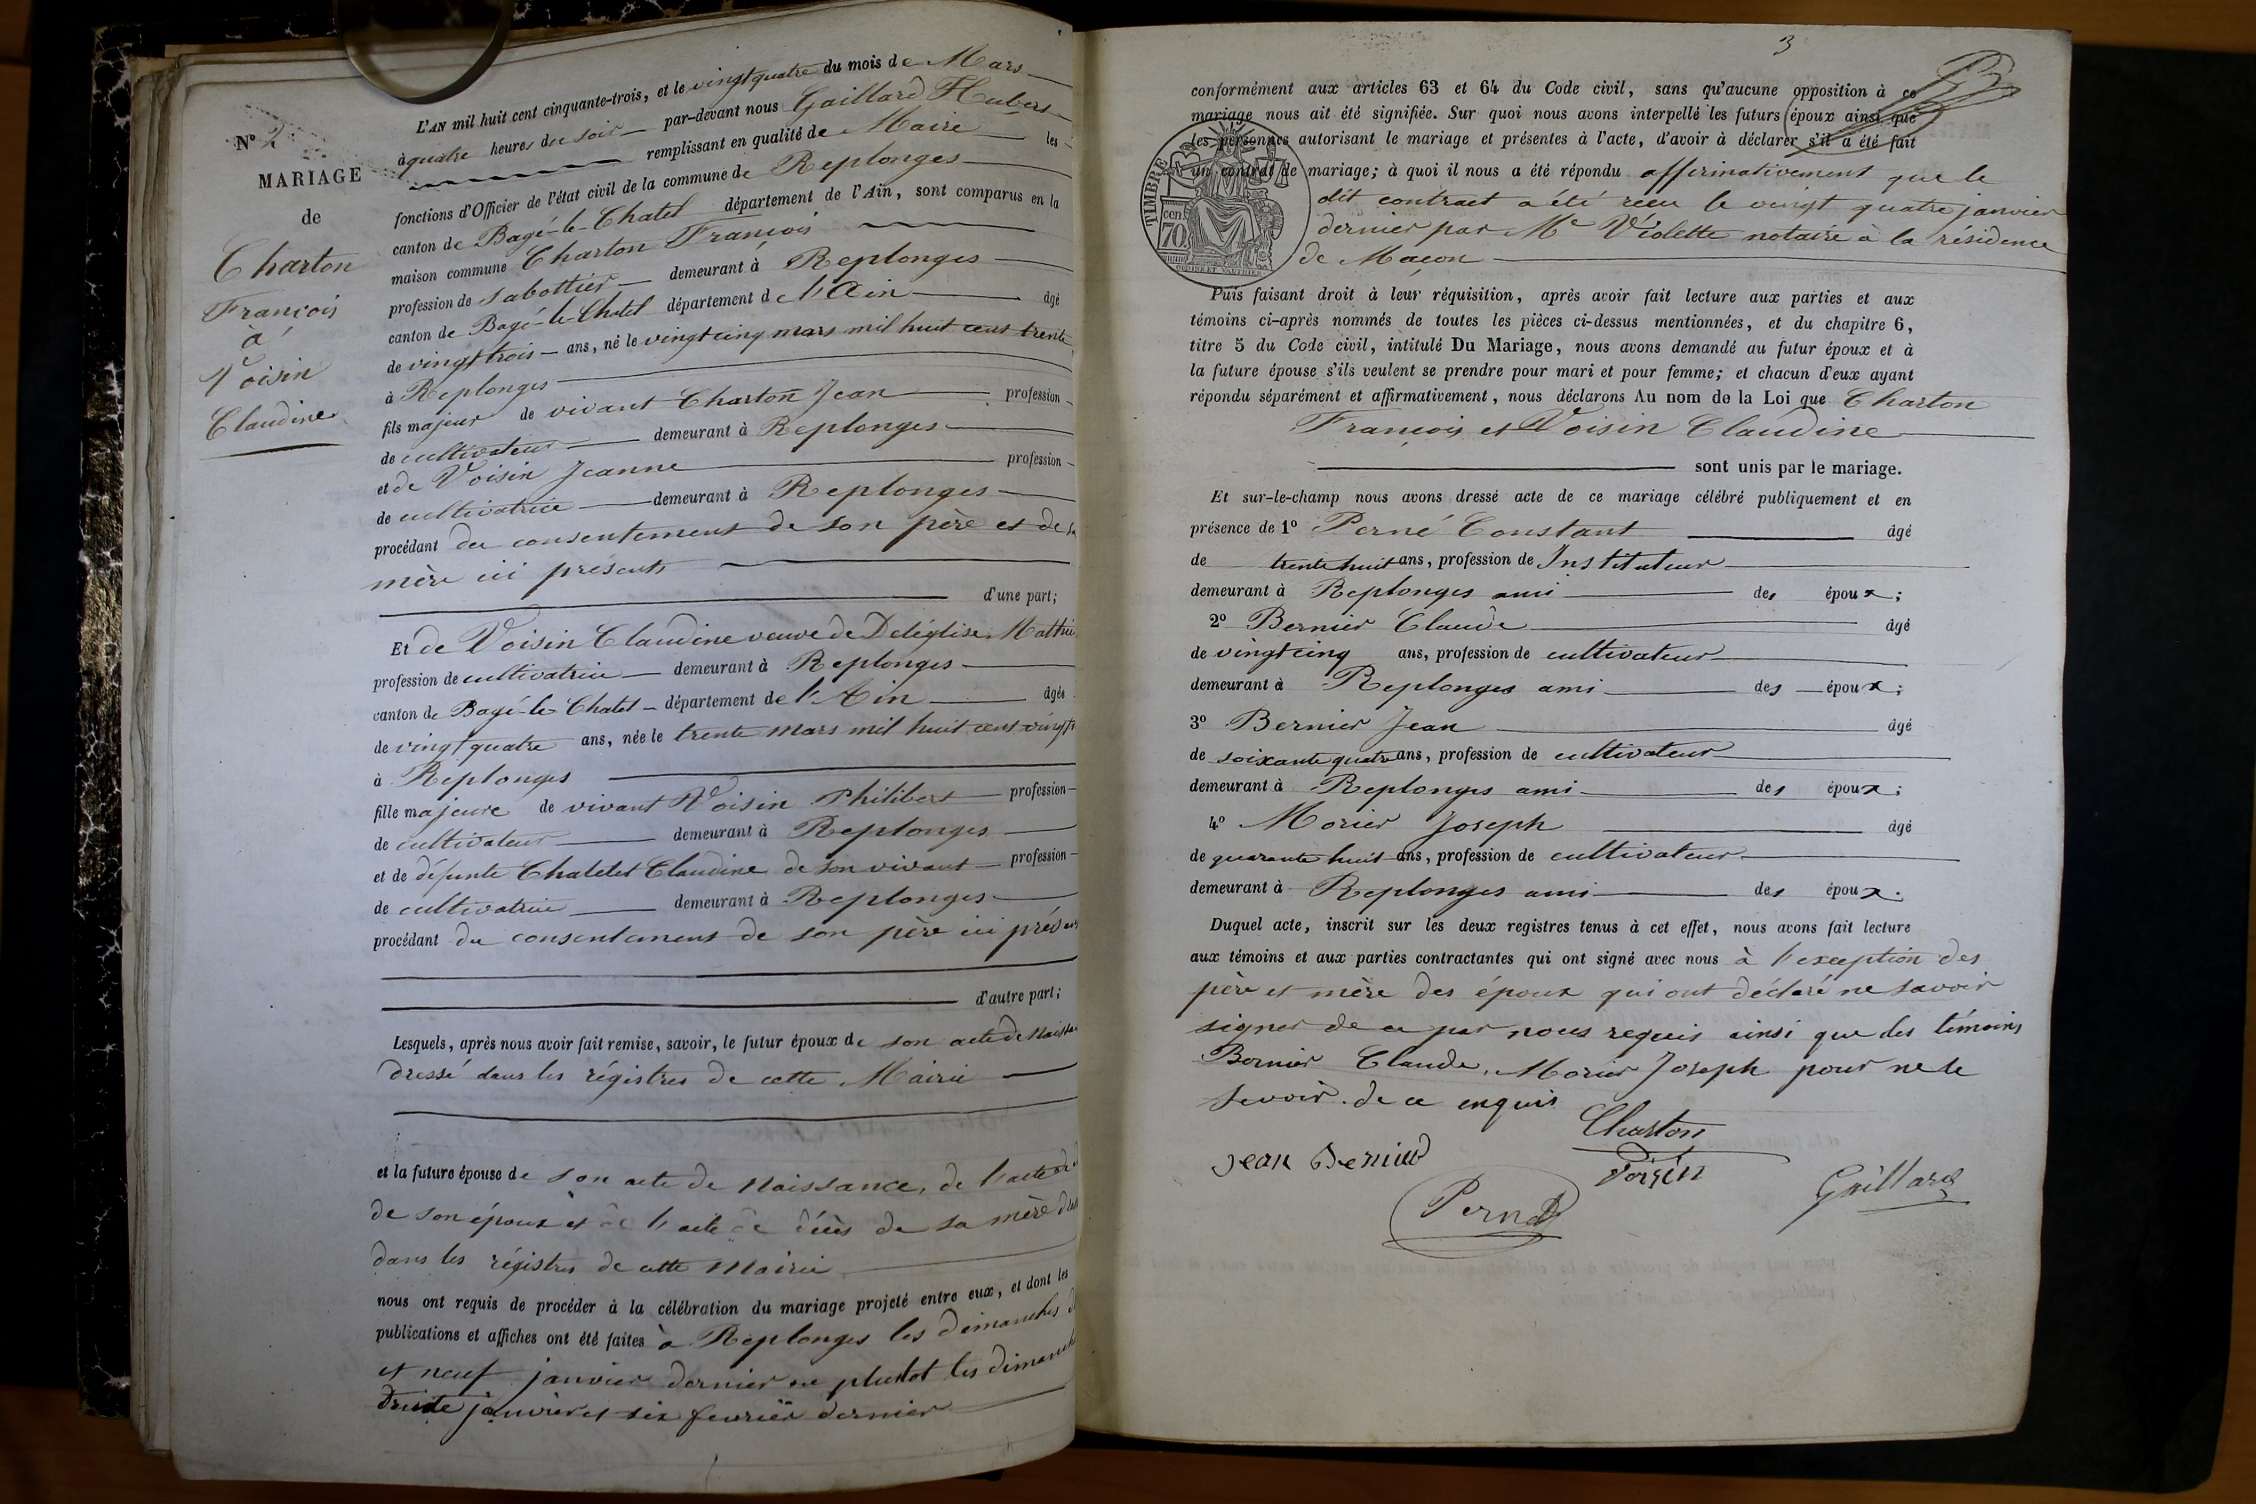 N° 2
MARIAGE
de
Charton
François
à
Voisin
Claudine
L'AN mil huit cent cinquante-trois, et le vingt quatre du mois de Mars
à quatre heures du soir par-devant nous Gaillard Hubert
remplissant en qualité de Maire les
fonctions d'Officier de l'état civil de la commune de Replonges
canton de Bagé-le-Chatel département de l'Ain, sont comparus en la
maison commune Charton François
profession de sabottier demeurant à Replonges
canton de Bagé-le-Chatel département de l'Ain âgé
de vingt trois ans, né le vingt cinq mars mil huit cent trente
à Replonges
fils majeur de vivant Charton Jean profession
de cultivateur demeurant à Replonges
et de Voisin Jeanne profession
de cultivatrice demeurant à Replonges
procédant du consentement de son père et de sa
mère ici présents
d'une part;
Et de Voisin Claudine veuve de Deléglise Mathieu
profession de cultivatrice demeurant à Replonges
canton de Bagé-le-Chatel département de l'Ain âgée
de vingt quatre ans, née le trente mars mil huit cent vingt
à Replonges
fille majeure de vivant Voisin Philibert profession
de cultivateur demeurant à Replonges
et de défunte Chatelet Claudine de son vivant profession
de cultivatrice demeurant à Replonges
procédant du consentement de son père ici présent
d'autre part;
Lesquels, après nous avoir fait remise, savoir, le futur époux de son acte de Naissa
dressé dans les régistres de cette Mairie
et la future épouse de son acte de Naissance, de l'acte de
de son époux et de l'acte de décès de sa mère
dans les régistres de cette Mairie
nous ont requis de procéder à la célébration du mariage projeté entre eux, et dont les
publications et affiches ont été faites à Replonges les dimanches
et neuf janvier dernier ou plustot les dimanches
trente janvier et six fevrier dernier
3
conformément aux articles 63 et 64 du Code civil, sans qu'aucune opposition à ce
mariage nous ait été signifiée. Sur quoi nous avons interpellé les futurs époux ainsi que
les personnes autorisant le mariage et présentes à l'acte, d'avoir à déclarer s'il a été fait
un contrat de mariage; à quoi il nous a été répondu affirmativement que le
dit contract a été recu le vingt quatre janvier
dernier par Me Violette notaire à la résidence
de Maçon
TIMBRE
cen.
70
Puis faisant droit à leur réquisition, après avoir fait lecture aux parties et aux
témoins ci-après nommés de toutes les pièces ci-dessus mentionnées, et du chapitre 6,
titre 5 du Code civil, intitulé Du Mariage, nous avons demandé au futur époux et à
la future épouse s'ils veulent se prendre pour mari et pour femme; et chacun d'eux ayant
répondu séparément et affirmativement, nous déclarons Au nom de la Loi que Charton
François et Voisin Claudine
sont unis par le mariage.
Et sur-le-champ nous avons dressé acte de ce mariage célébré publiquement et en
présence de 1° Perné Constant âgé
de trente huit ans, profession de Instituteur
demeurant à Replonges ami des époux;
2° Bernier Claude âgé
de vingt cinq ans, profession de cultivateur
demeurant à Replonges ami des époux;
3° Bernier Jean âgé
de soixante quatre ans, profession de cultivateur
demeurant à Replonges ami des époux;
4° Morier Joseph âgé
de quarante huit ans, profession de cultivateur
demeurant à Replonges ami des époux.
Duquel acte, inscrit sur les deux registres tenus à cet effet, nous avons fait lecture
aux témoins et aux parties contractantes qui ont signé avec nous à l'exception des
père et mère des époux qui ont déclaré ne savoir
signer de ce par nous requis ainsi que les témoins
Bernier Claude, Morier Joseph pour ne le
savoir. de ce enquis
Charton
jean Bernier
Voisin
Perné
Gaillard